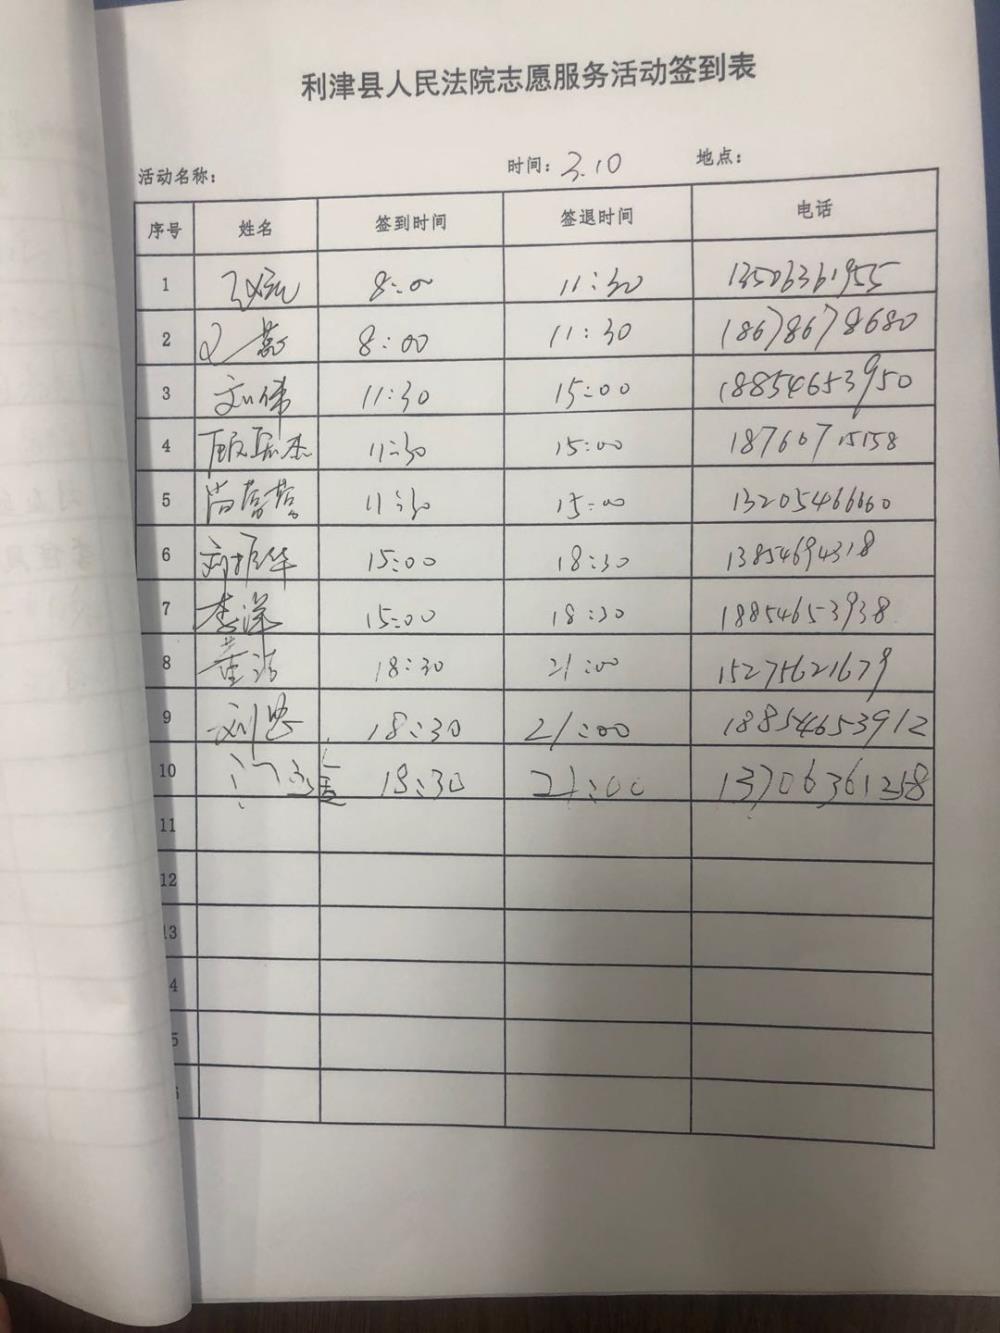 利津县人民法院志愿服务活动签到表
活动名称: 时间: 3.10 地点:
序号 姓名 签到时间 签退时间 电话
1 8:00 11:30 13506361955
2 8:00 11:30 18678678680
3 刘伟 11:30 15:00 18854653950
4 11:30 15:00 18760715158
5 尚蓓蓓 11:30 15:00 13205466660
6 刘振华 15:00 18:30 13854694318
7 李洋 15:00 18:30 18854653938
8 董洁 18:30 21:00 15275621679
9 刘忠 18:30 21:00 18854653912
10 18:30 21:00 13706361258
11
12
13
4
5